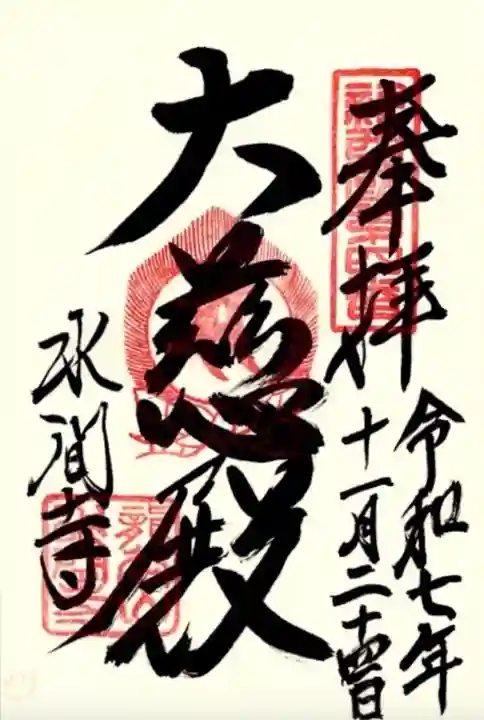 奉拝
令和七年
十一月二十四日
大慈殿
水間寺